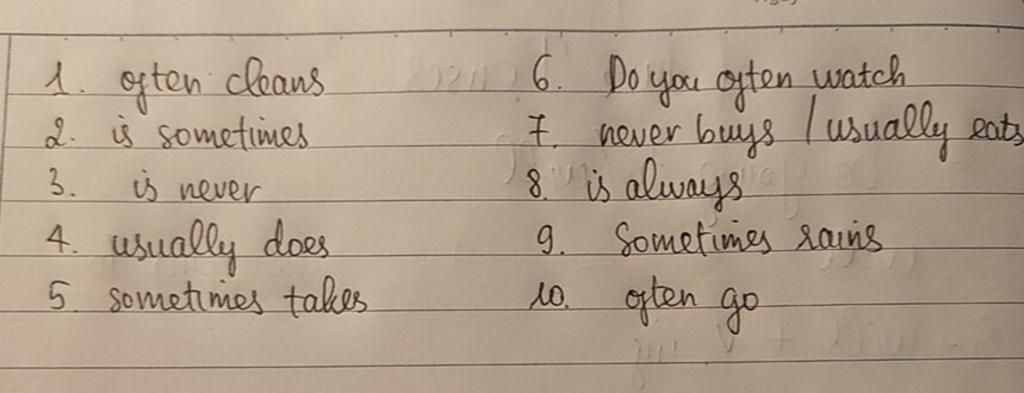 1. often cleans
2. is sometimes
3. is never
4. usually does
5. sometimes takes
6. Do you often watch
7. never buys / usually eats
8. is always
9. Sometimes rains
10. often go